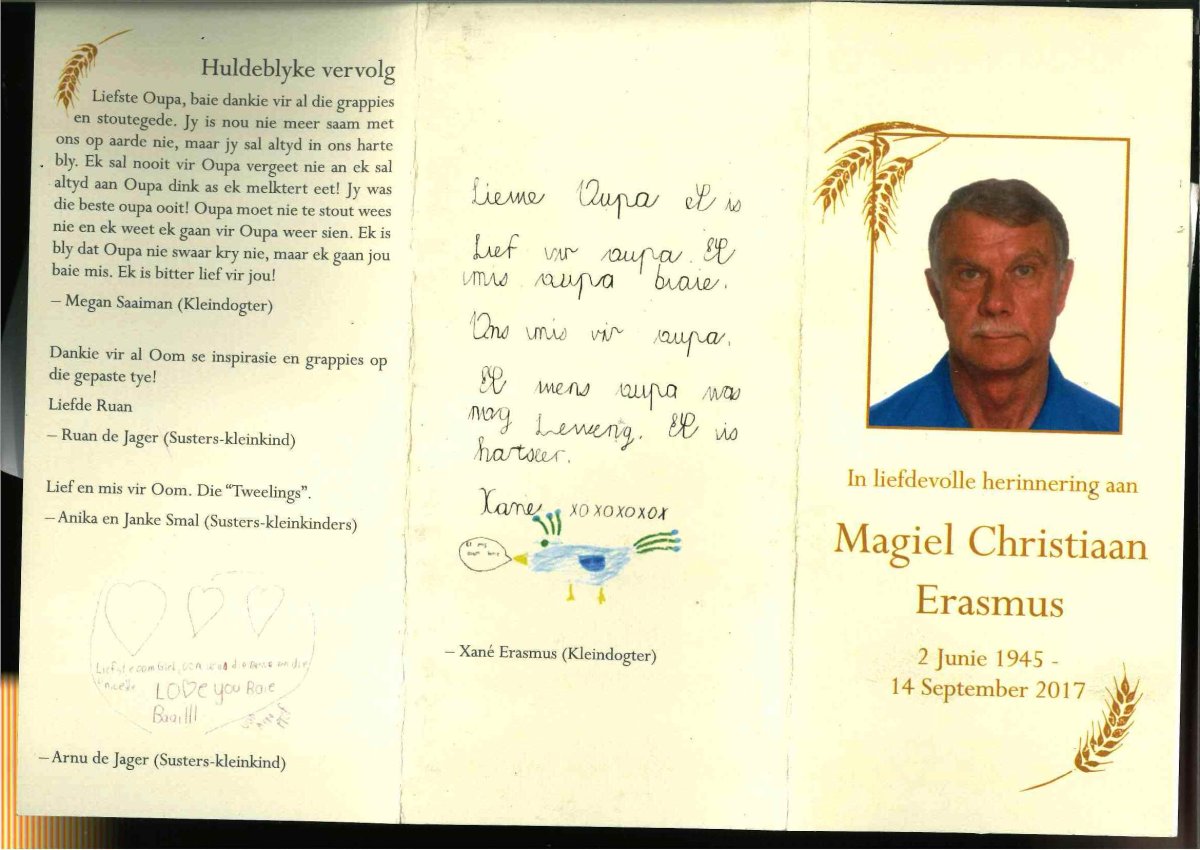 Huldeblyke vervolg
Liefste Oupa, baie dankie vir al die grappies
en stoutegede. Jy is nou nie meer saam met
ons op aarde nie, maar jy sal altyd in ons harte
bly. Ek sal nooit vir Oupa vergeet nie an ek sal
altyd aan Oupa dink as ek melktert eet! Jy was
die beste oupa ooit! Oupa moet nie te stout wees
nie en ek weet ek gaan vir Oupa weer sien. Ek is
bly dat Oupa nie swaar kry nie, maar ek gaan jou
baie mis. Ek is bitter lief vir jou!
– Megan Saaiman (Kleindogter)
Dankie vir al Oom se inspirasie en grappies op
die gepaste tye!
Liefde Ruan
– Ruan de Jager (Susters-kleinkind)
Lief en mis vir Oom. Die “Tweelings”.
– Anika en Janke Smal (Susters-kleinkinders)
Liefste oom Giel,
LOVE you Baie
– Arnu de Jager (Susters-kleinkind)
Oupa Ek is
Lief vir oupa. Ek
mis oupa biaie.
Ons mis vir oupa.
Ek wens oupa was
nog Lewenig. Ek is
hartseer.
Xané xoxoxoxox
Ek mis
– Xané Erasmus (Kleindogter)
In liefdevolle herinnering aan
Magiel Christiaan
Erasmus
2 Junie 1945 -
14 September 2017